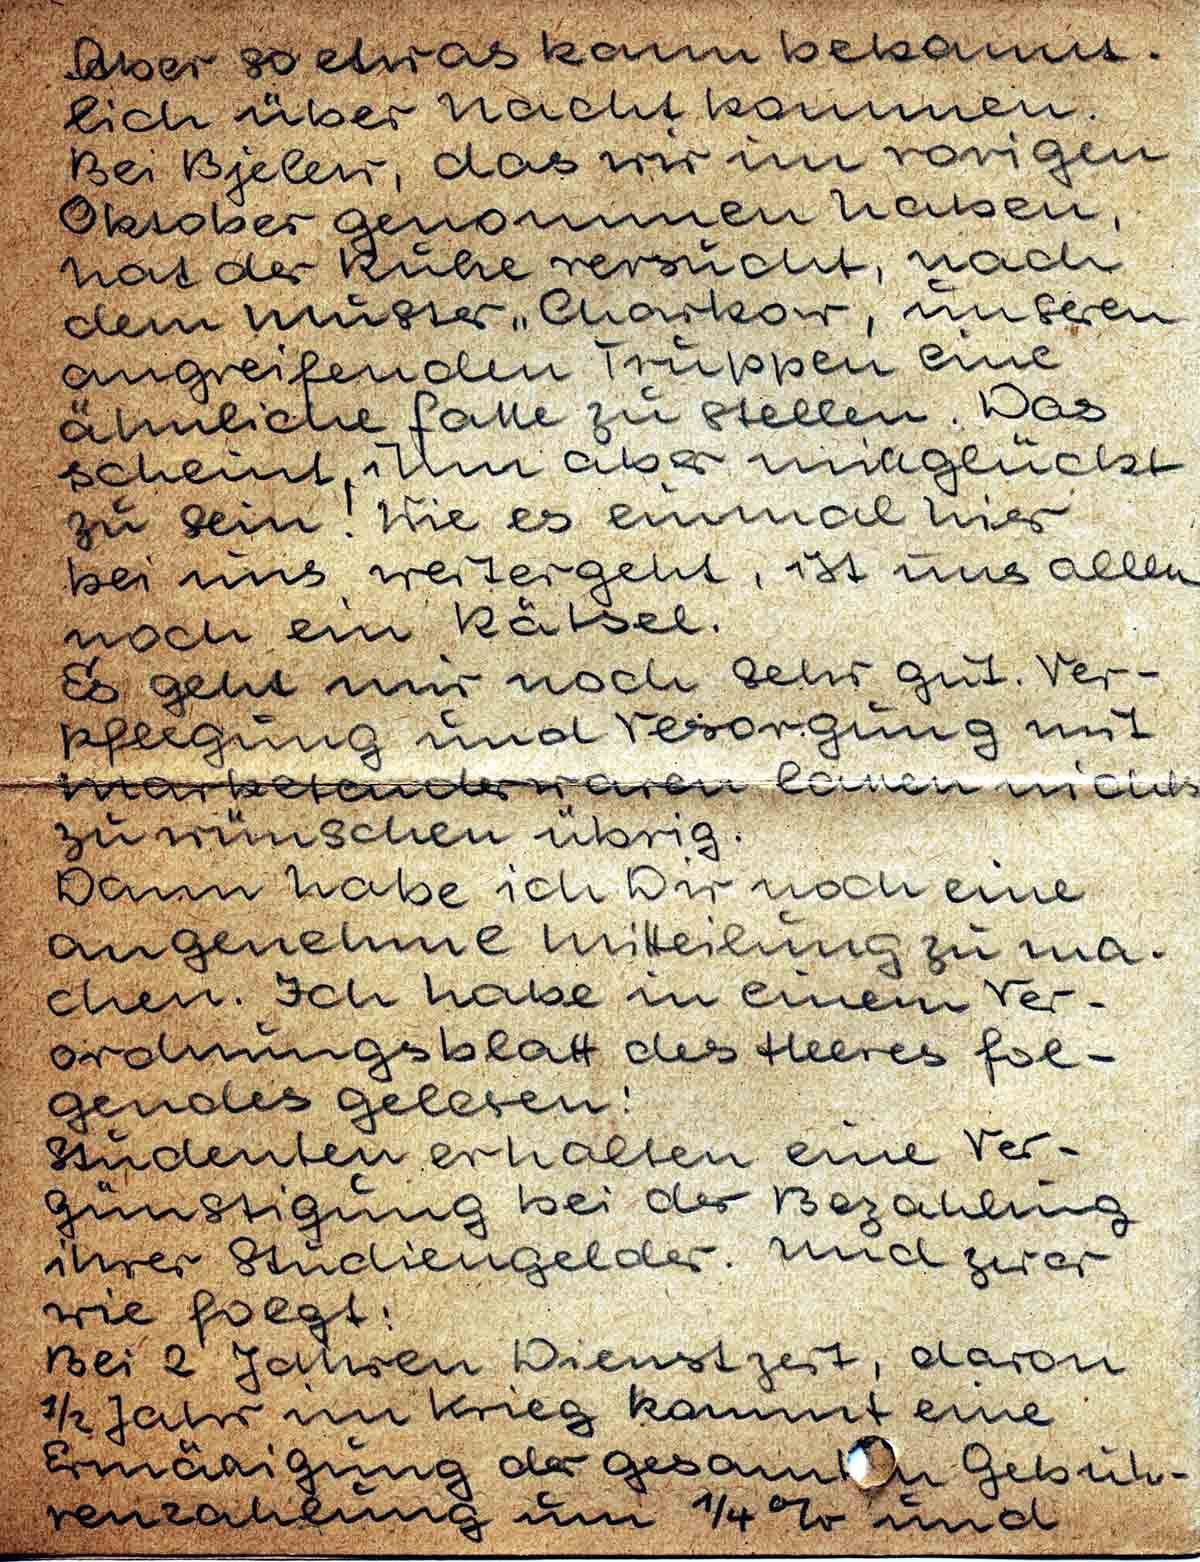 Aber so etwas kann bekannt-
lich über Nacht kommen.
Bei Bjelew, das wir im vorigen
Oktober genommen haben,
hat der Ruße versucht, nach
dem Muster „Charkow, unseren
angreifenden Truppen eine
ähnliche Falle zu stellen. Das
scheint ihm aber mißglückt
zu sein! Wie es einmal hier
bei uns weitergeht, ist uns allen
noch ein Rätsel.
Es geht mir noch sehr gut. Ver-
pflegung und Vesorgung mit
Marketenderwaren laßen nichts
zu wünschen übrig.
Dann habe ich Dir noch eine
angenehme Mitteilung zu ma-
chen. Ich habe in einem Ver-
ordnungsblatt des Heeres fol-
gendes gelesen:
Studenten erhalten eine Ver-
günstigung bei der Bezahlung
ihrer Studiengelder. Und zwar
wie folgt:
Bei 2 Jahren Dienstzeit, davon
1/2 Jahr im Krieg kommt eine
Ermäßigung der gesamten Gebüh-
renzahlung um 1/4 % und